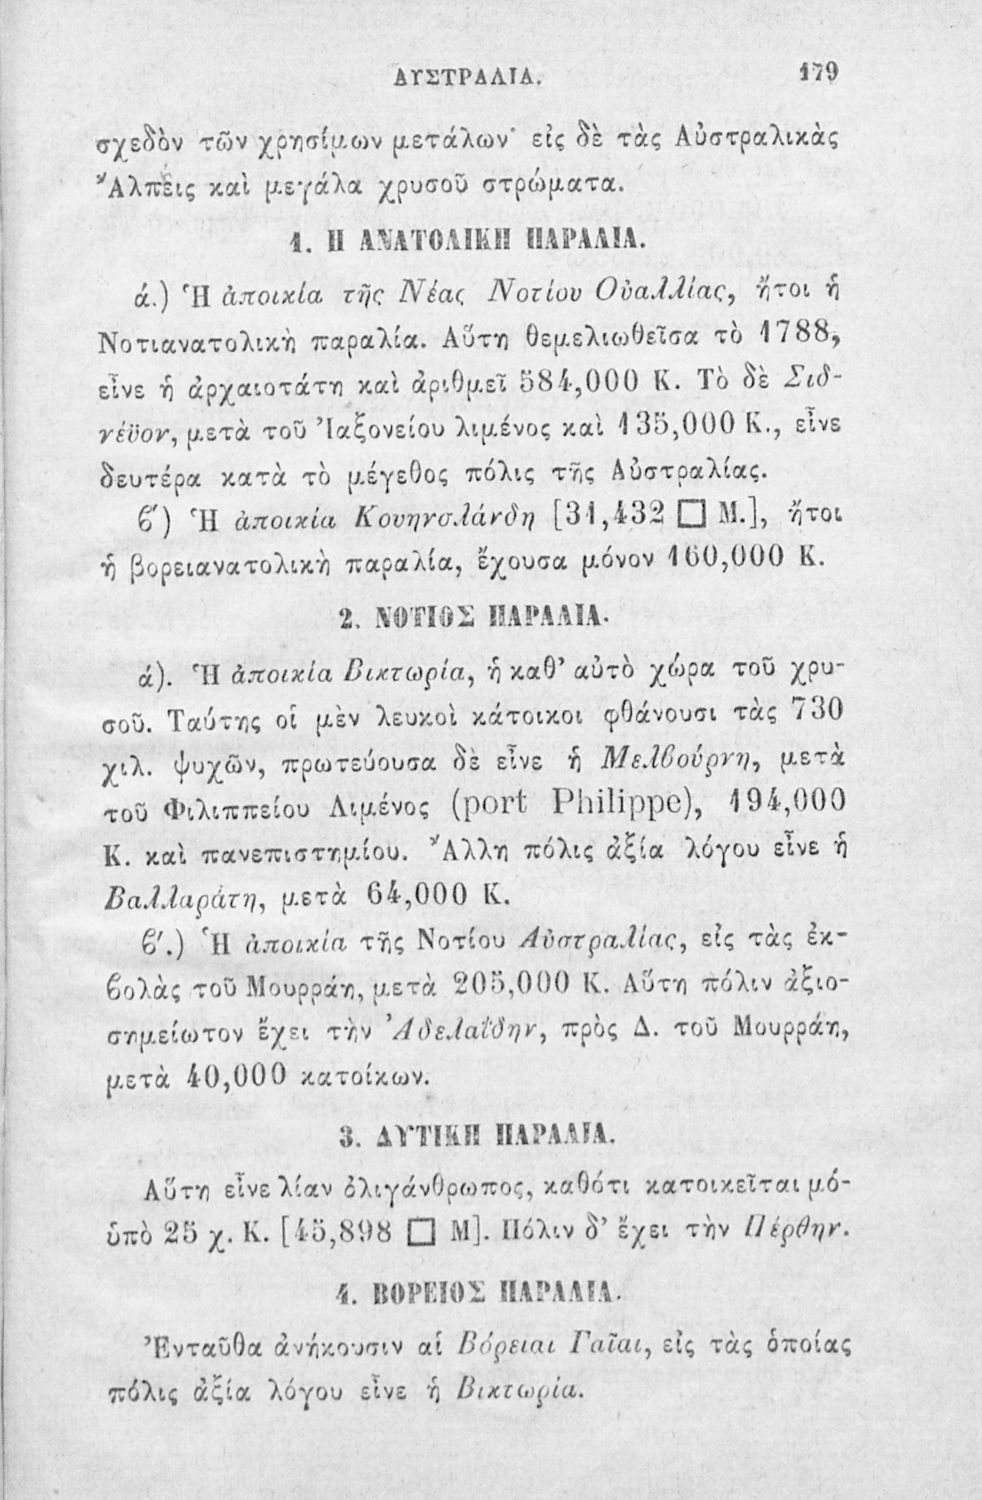 ΑΥΣΤΡΑΛΙΑ. 179
σχεδὸν τῶν χρησίμων μετάλων· εἰς δὲ τὰς Αὐστραλικὰς
Ἄλπεις καὶ μεγάλα χρυσοῦ στρώματα.
1. Η ΑΝΑΤΟΛΙΚΗ ΠΑΡΑΛΙΑ.
ά.) Ἡ ἀποικία τῆς Νέας Νοτίου Οὐαλλίας, ἤτοι ἡ
Νοτιανατολικὴ παραλία. Αὕτη θεμελιωθεῖσα τὸ 1788,
εἶνε ἡ ἀρχαιοτάτη καὶ ἀριθμεῖ 584,000 Κ. Τὸ δὲ Σιδ-
νέϋον, μετὰ τοῦ Ἰαξονείου λιμένος καὶ 135,000 Κ., εἶνε
δευτέρα κατὰ τὸ μέγεθος πόλις τῆς Αὐστραλίας.
ϐ′) Ἡ ἀποικία Κουηνσλάνδη [31,432 □ Μ.], ἤτοι
ἡ βορειανατολικὴ παραλία, ἔχουσα μόνον 160,000 Κ.
2. ΝΟΤΙΟΣ ΠΑΡΑΛΙΑ.
ά). Ἡ ἀποικία Βικτωρία, ἡ καθ’ αὑτὸ χώρα τοῦ χρυ-
σοῦ. Ταύτης οἱ μὲν λευκοὶ κάτοικοι φθάνουσι τὰς 730
χιλ. ψυχῶν, πρωτεύουσα δὲ εἶνε ἡ Μελϐούρνη, μετὰ
τοῦ Φιλιππείου Λιμένος (port Philippe), 194,000
Κ. καὶ πανεπιστημίου. Ἄλλη πόλις ἀξία λόγου εἶνε ἡ
Βαλλαράτη, μετὰ 64,000 Κ.
ϐ′.) Ἡ ἀποικία τῆς Νοτίου Αὐστραλίας, εἰς τὰς ἐκ-
ϐολὰς τοῦ Μουρράη, μετὰ 205,000 Κ. Αὕτη πόλιν ἀξιο-
σημείωτον ἔχει τὴν Ἀδελαΐδην, πρὸς Δ. τοῦ Μουρράη,
μετὰ 40,000 κατοίκων.
3. ΔΥΤΙΚΗ ΠΑΡΑΛΙΑ.
Αὕτη εἶνε λίαν ὀλιγάνθρωπος, καθότι κατοικεῖται μό-
ὑπὸ 25 χ. Κ. [45,898 □ Μ]. Πόλιν δ’ ἔχει τὴν Πέρθην.
4. ΒΟΡΕΙΟΣ ΠΑΡΑΛΙΑ.
Ἐνταῦθα ἀνήκουσιν αἱ Βόρειαι Γαῖαι, εἰς τὰς ὁποίας
πόλις ἀξία λόγου εἶνε ἡ Βικτωρία.